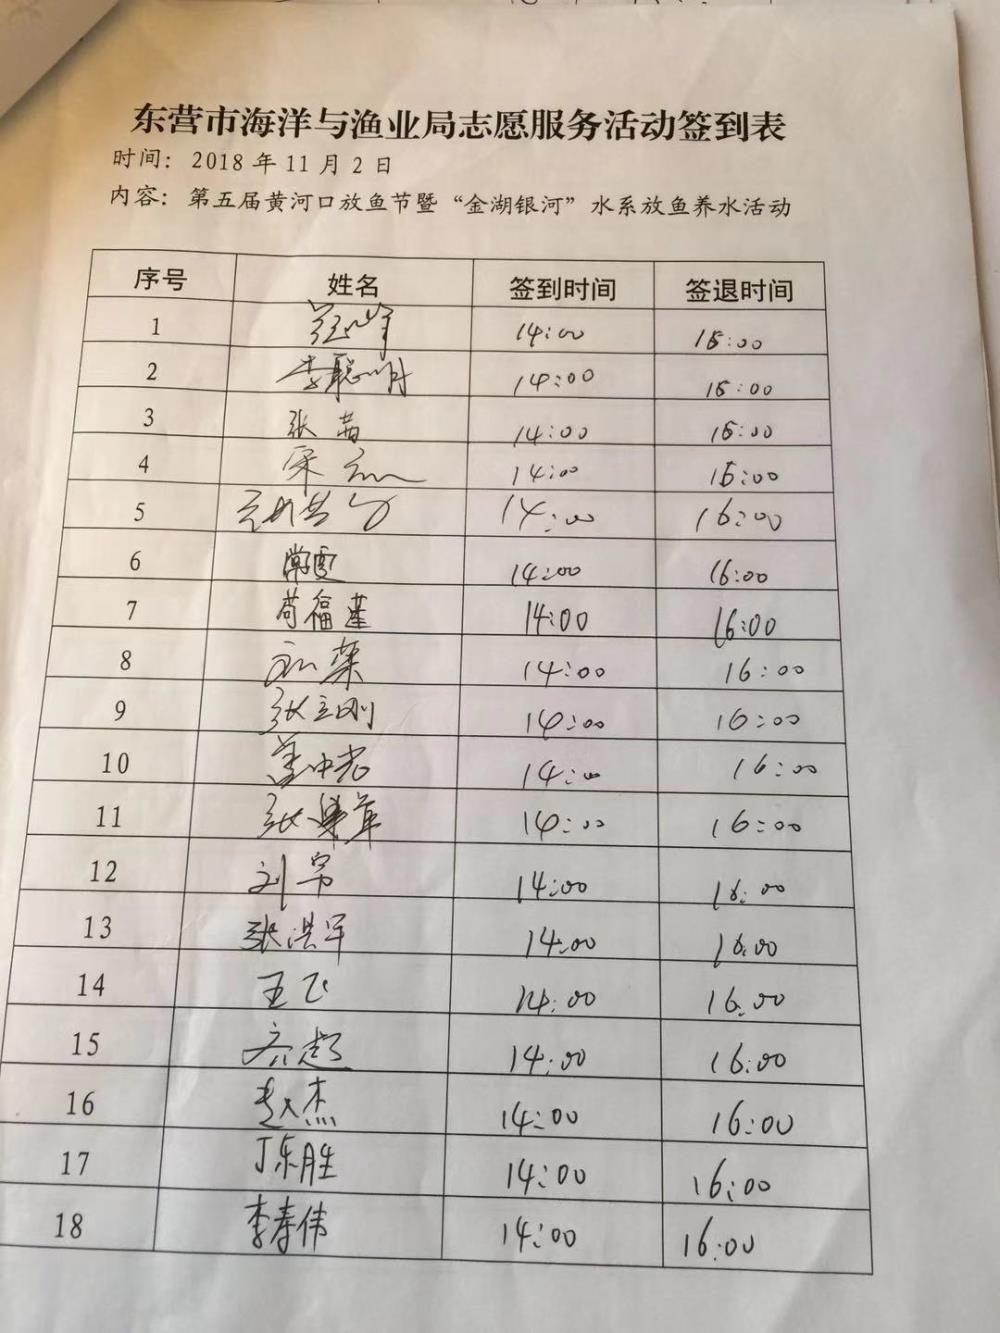 东营市海洋与渔业局志愿服务活动签到表
时间：2018年11月2日
内容：第五届黄河口放鱼节暨“金湖银河”水系放鱼养水活动
序号 姓名 签到时间 签退时间
1 14:00 15:00
2 李聪明 14:00 15:00
3 张茜 14:00 15:00
4 宋 14:00 15:00
5 14:00 16:00
6 常雯 14:00 16:00
7 苟福莲 14:00 16:00
8 14:00 16:00
9 张立刚 14:00 16:00
10 14:00 16:00
11 张 14:00 16:00
12 刘 14:00 16:00
13 张洪军 14:00 16:00
14 王飞 14:00 16:00
15 齐超 14:00 16:00
16 赵杰 14:00 16:00
17 丁东胜 14:00 16:00
18 李寿伟 14:00 16:00